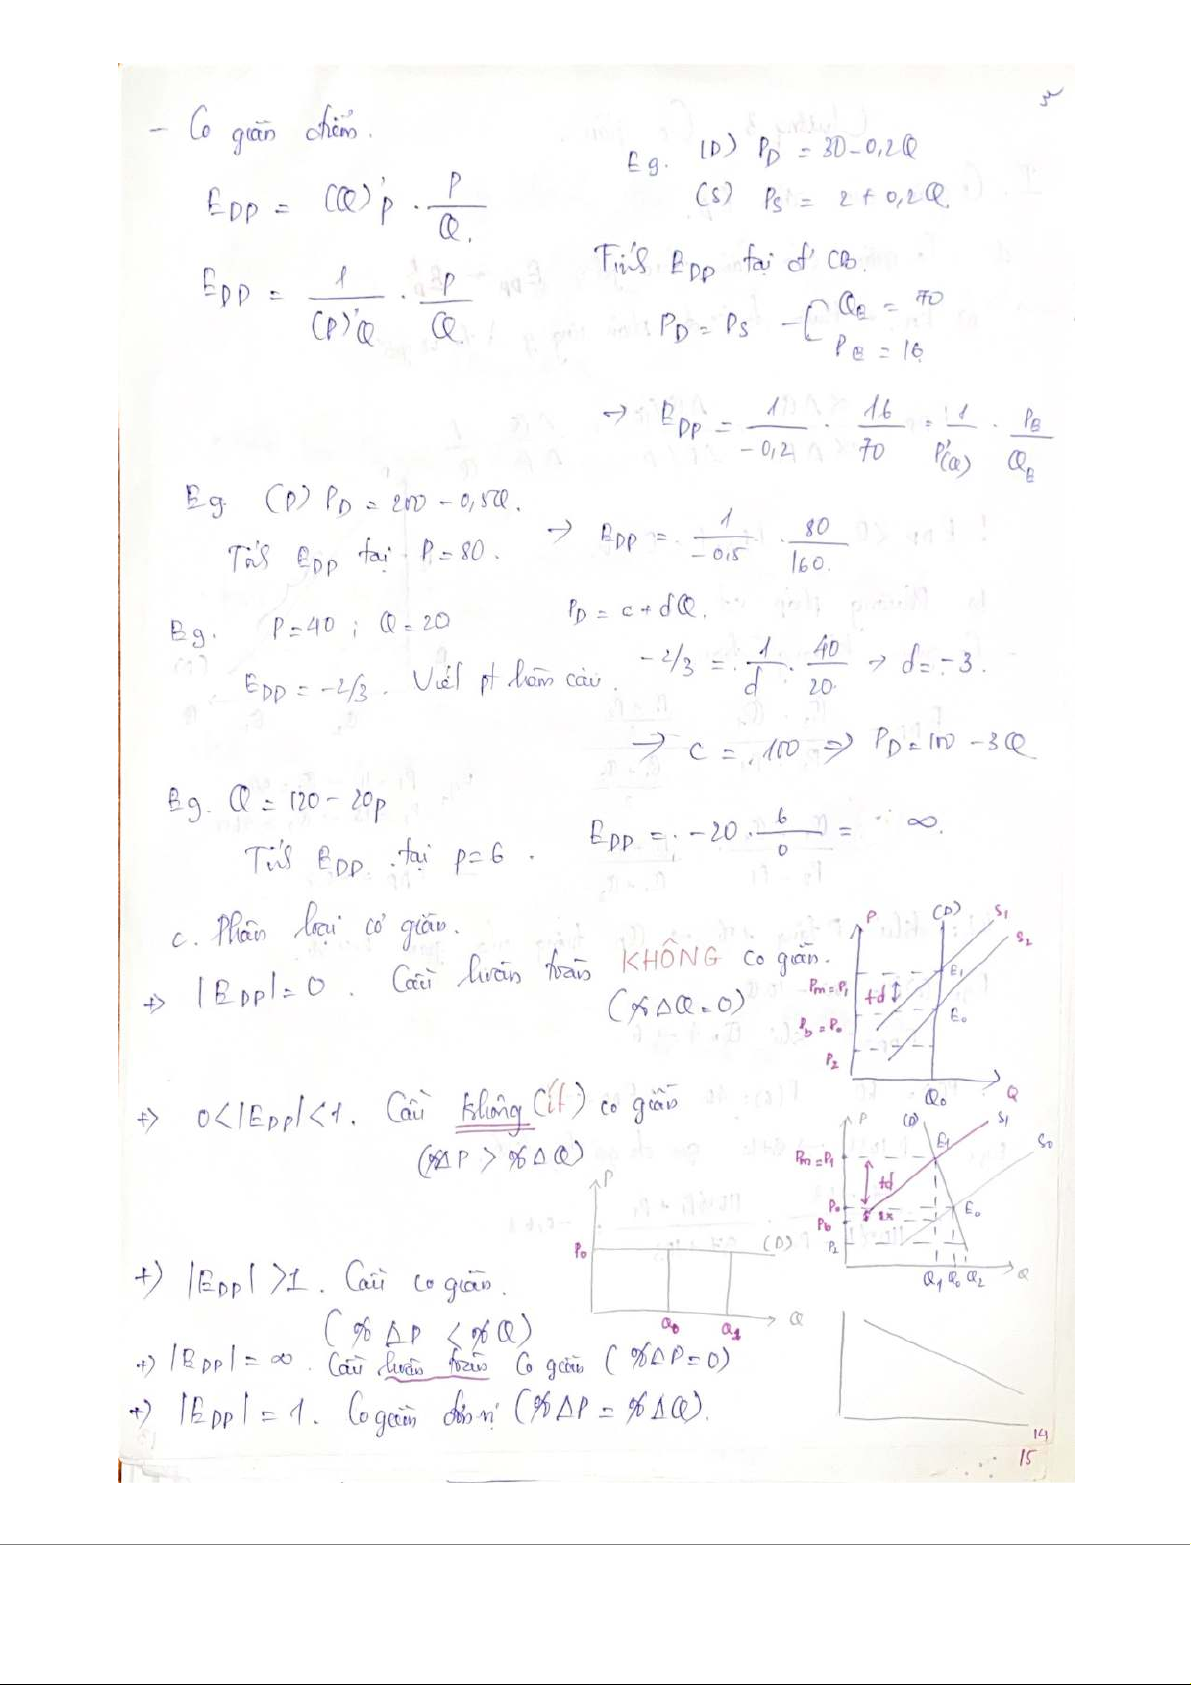 - Co giãn điểm.
E_DP = (Q)'P · P/Q.
E_DP = 1/(P)'Q · P/Q.
Eg. (D) P_D = 30 - 0,2Q
(S) P_S = 2 + 0,2Q.
Tính E_DP tại đ' CB.
P_D = P_S → [ Q_E = 70
P_E = 16
→ E_DP = 1/-0,2 · 16/70 = 1/P'(Q) · P_E/Q_E
Eg. (D) P_D = 200 - 0,5Q.
Tính E_DP tại P = 80.
→ E_DP = 1/-0,5 · 80/160.
Eg. P = 40 ; Q = 20
E_DP = -2/3. Viết pt hàm cầu.
P_D = c + dQ.
-2/3 = 1/d · 40/20 → d = -3.
→ c = 100 ⇒ P_D = 100 - 3Q
Eg. Q = 120 - 20p
Tính E_DP tại p = 6.
E_DP = -20 · 6/0 = ∞.
c. Phân loại co giãn.
+) |E_DP| = 0. Cầu hoàn toàn KHÔNG co giãn.
(%ΔQ = 0)
P (D) S1
S2
Pm = P1 td E1
Pb = P0 E0
P2
Q0 Q
+) 0 < |E_DP| < 1. Cầu không (ít) co giãn
(%ΔP > %ΔQ)
P (D) S1
S0
Pm = P1 E1
td
P0 E0
Pb
P2
Q1 Q0 Q2 Q
P
P0 (D)
Q0 Q1 Q
+) |E_DP| > 1. Cầu co giãn.
(%ΔP < %Q)
+) |E_DP| = ∞. Cầu hoàn toàn co giãn (%ΔP = 0)
+) |E_DP| = 1. Co giãn đơn vị (%ΔP = %ΔQ).
14
15